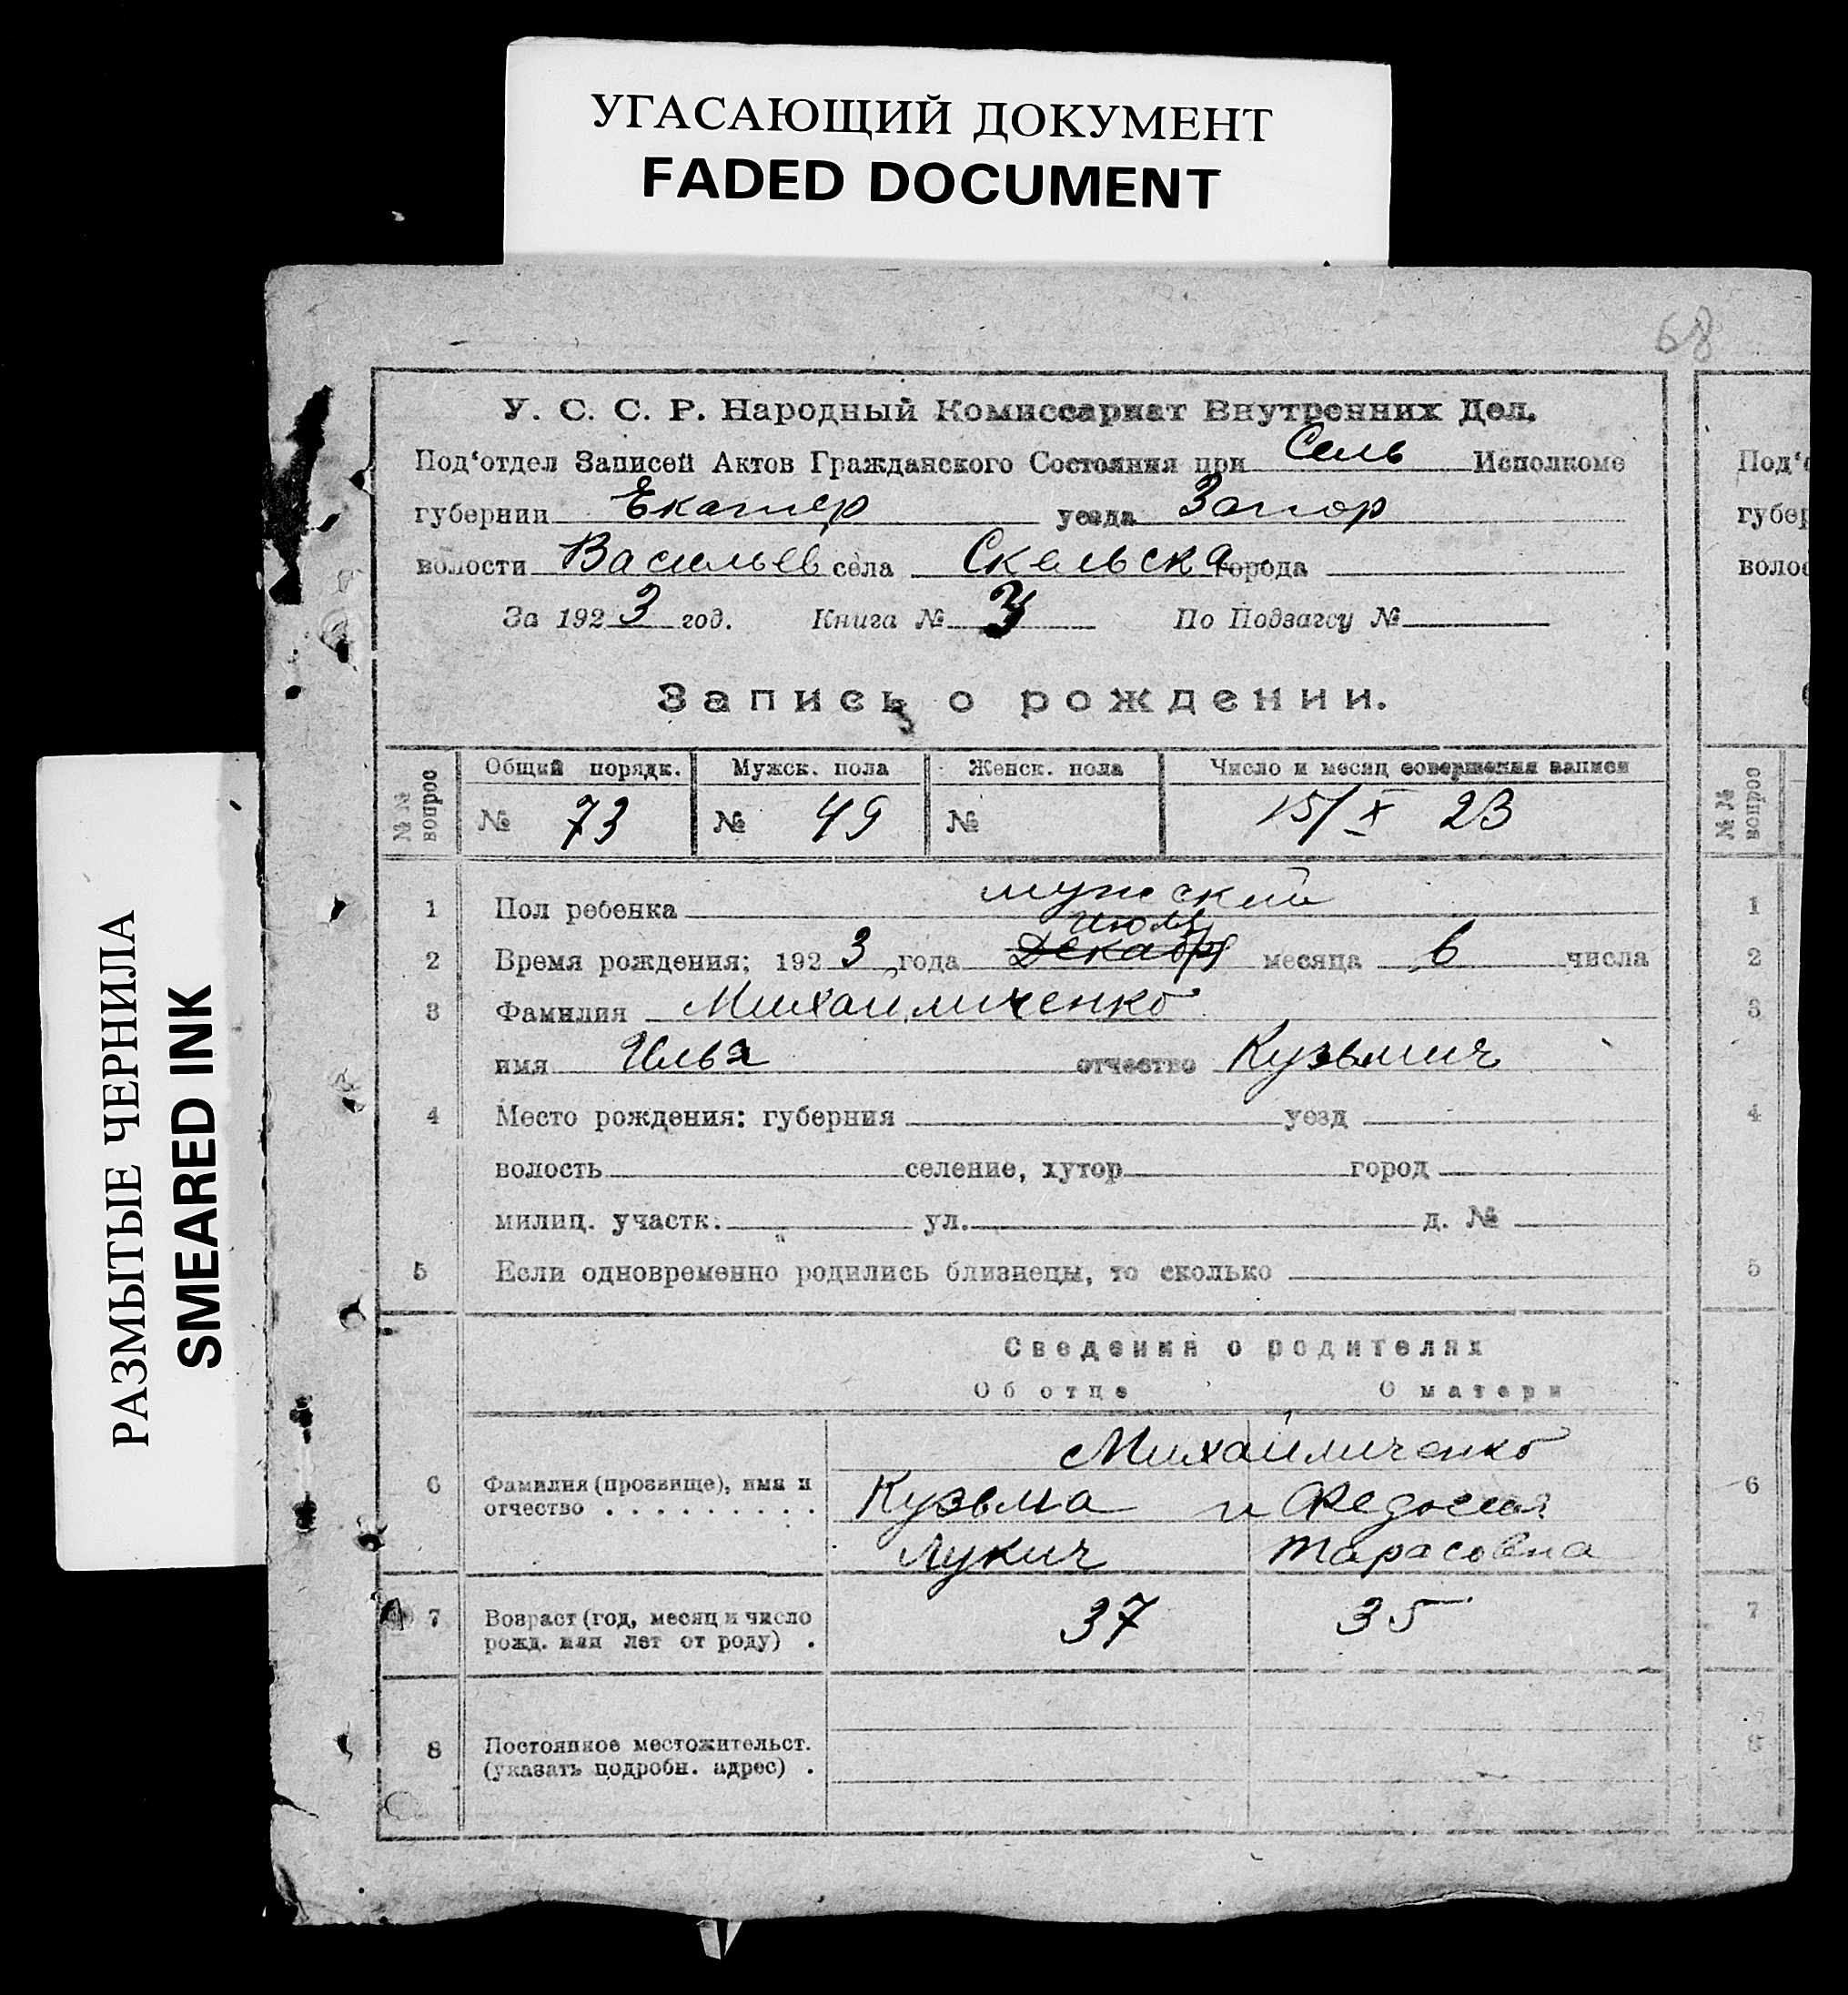 УГАСАЮЩИЙ ДОКУМЕНТ
FADED DOCUMENT
РАЗМЫТЫЕ ЧЕРНИЛА
SMEARED INK
68
У. С. С. Р. Народный Комиссариат Внутренних Дел.
Под‘отдел Записей Актов Гражданского Состояния при Сель Исполкоме
губернии Екатер уезда Запор
волости Васильев села Скельска города
За 1923 год. Книга № 3 По Подзагсу №
Запись о рождении.
№№ вопрос Общий порядк. Мужск. пола Женск. пола Число и месяц совершения записи
№ 73 № 49 № 15/X 23
1 Пол ребенка мужской
июля
2 Время рождения: 1923 года Декабря месяца 6 числа
3 Фамилия Михайличенко
имя Илья отчество Кузьмич
4 Место рождения: губерния уезд
волость селение, хутор город
милиц. участк. ул. д. №
5 Если одновременно родились близнецы, то сколько
Сведения о родителях
Об отце О матери
Михайличенко
6 Фамилия (прозвище), имя и Кузьма и Федосия
отчество . . . . . . . . . Лукич Тарасовна
7 Возраст (год, месяц и число 37 35
рожд. или лет от роду) .
8 Постоянное местожительст.
(указать подробн. адрес) .
Под‘о
губер
волос
№№ вопрос
1
2
3
4
5
6
7
8